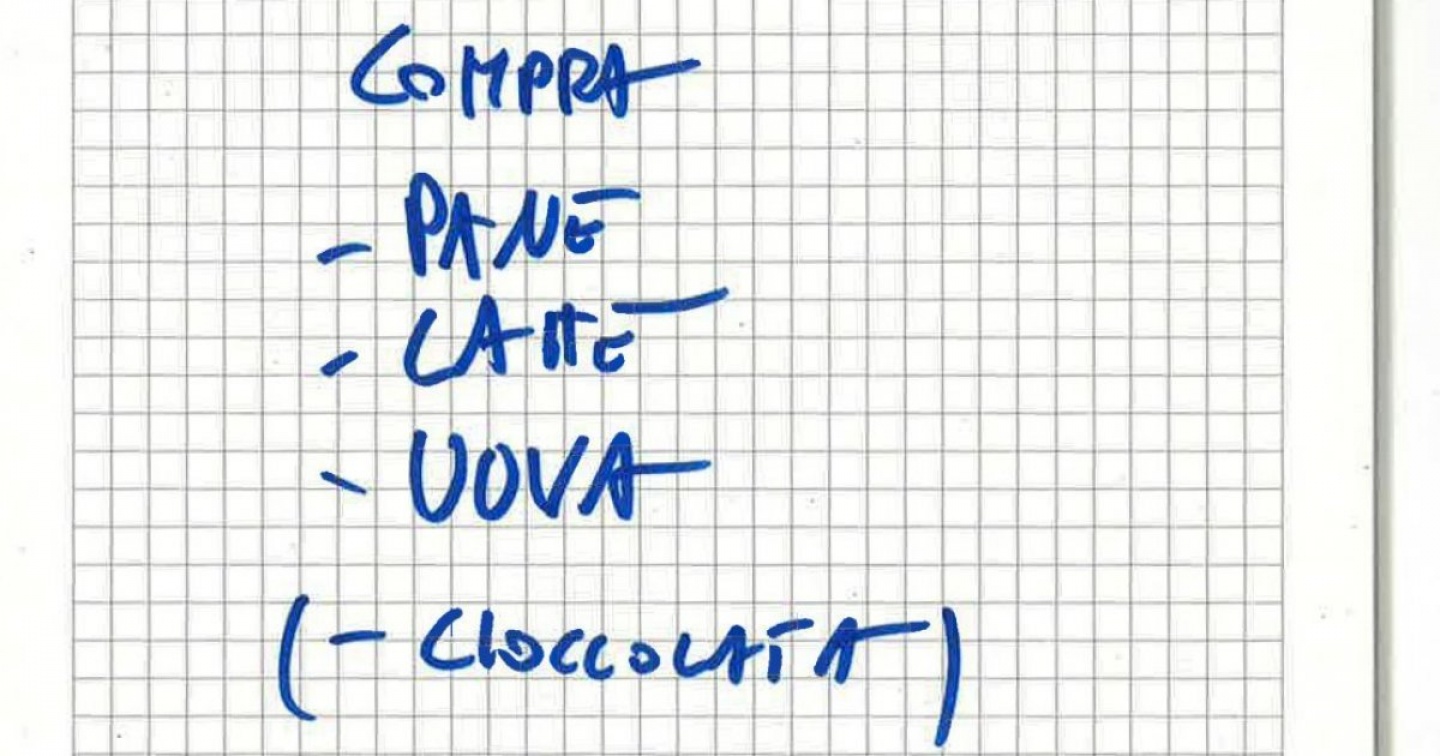 COMPRA
- PANE
- LATTE
- UOVA
(- CIOCCOLATA)